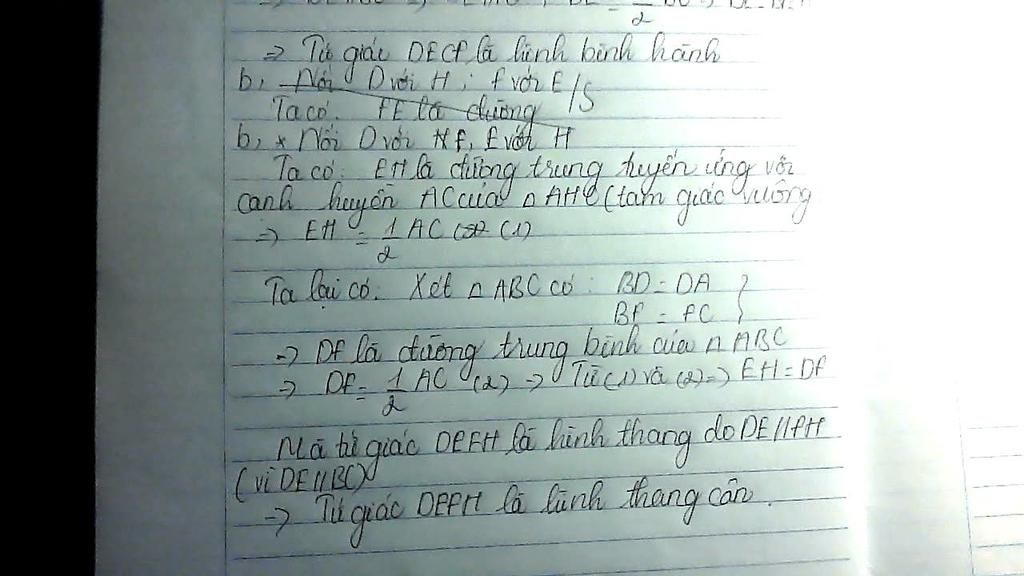 ⇒ Tứ giác DECF là hình bình hành
b, Nối D với H; F với E
Ta có: FE là đường
b, * Nối D với F, E với H
Ta có: EH là đường trung tuyến ứng với
cạnh huyền AC của △ AHC (tam giác vuông
⇒ EH = 1/2 AC (1)
Ta lại có: Xét △ ABC có: BD = DA
BF = FC }
⇒ DF là đường trung bình của △ ABC
⇒ DF = 1/2 AC (2) ⇒ Từ (1) và (2) ⇒ EH = DF
Mà tứ giác DEFH là hình thang do DE//FH
(vì DE//BC)
⇒ Tứ giác DEFH là hình thang cân.